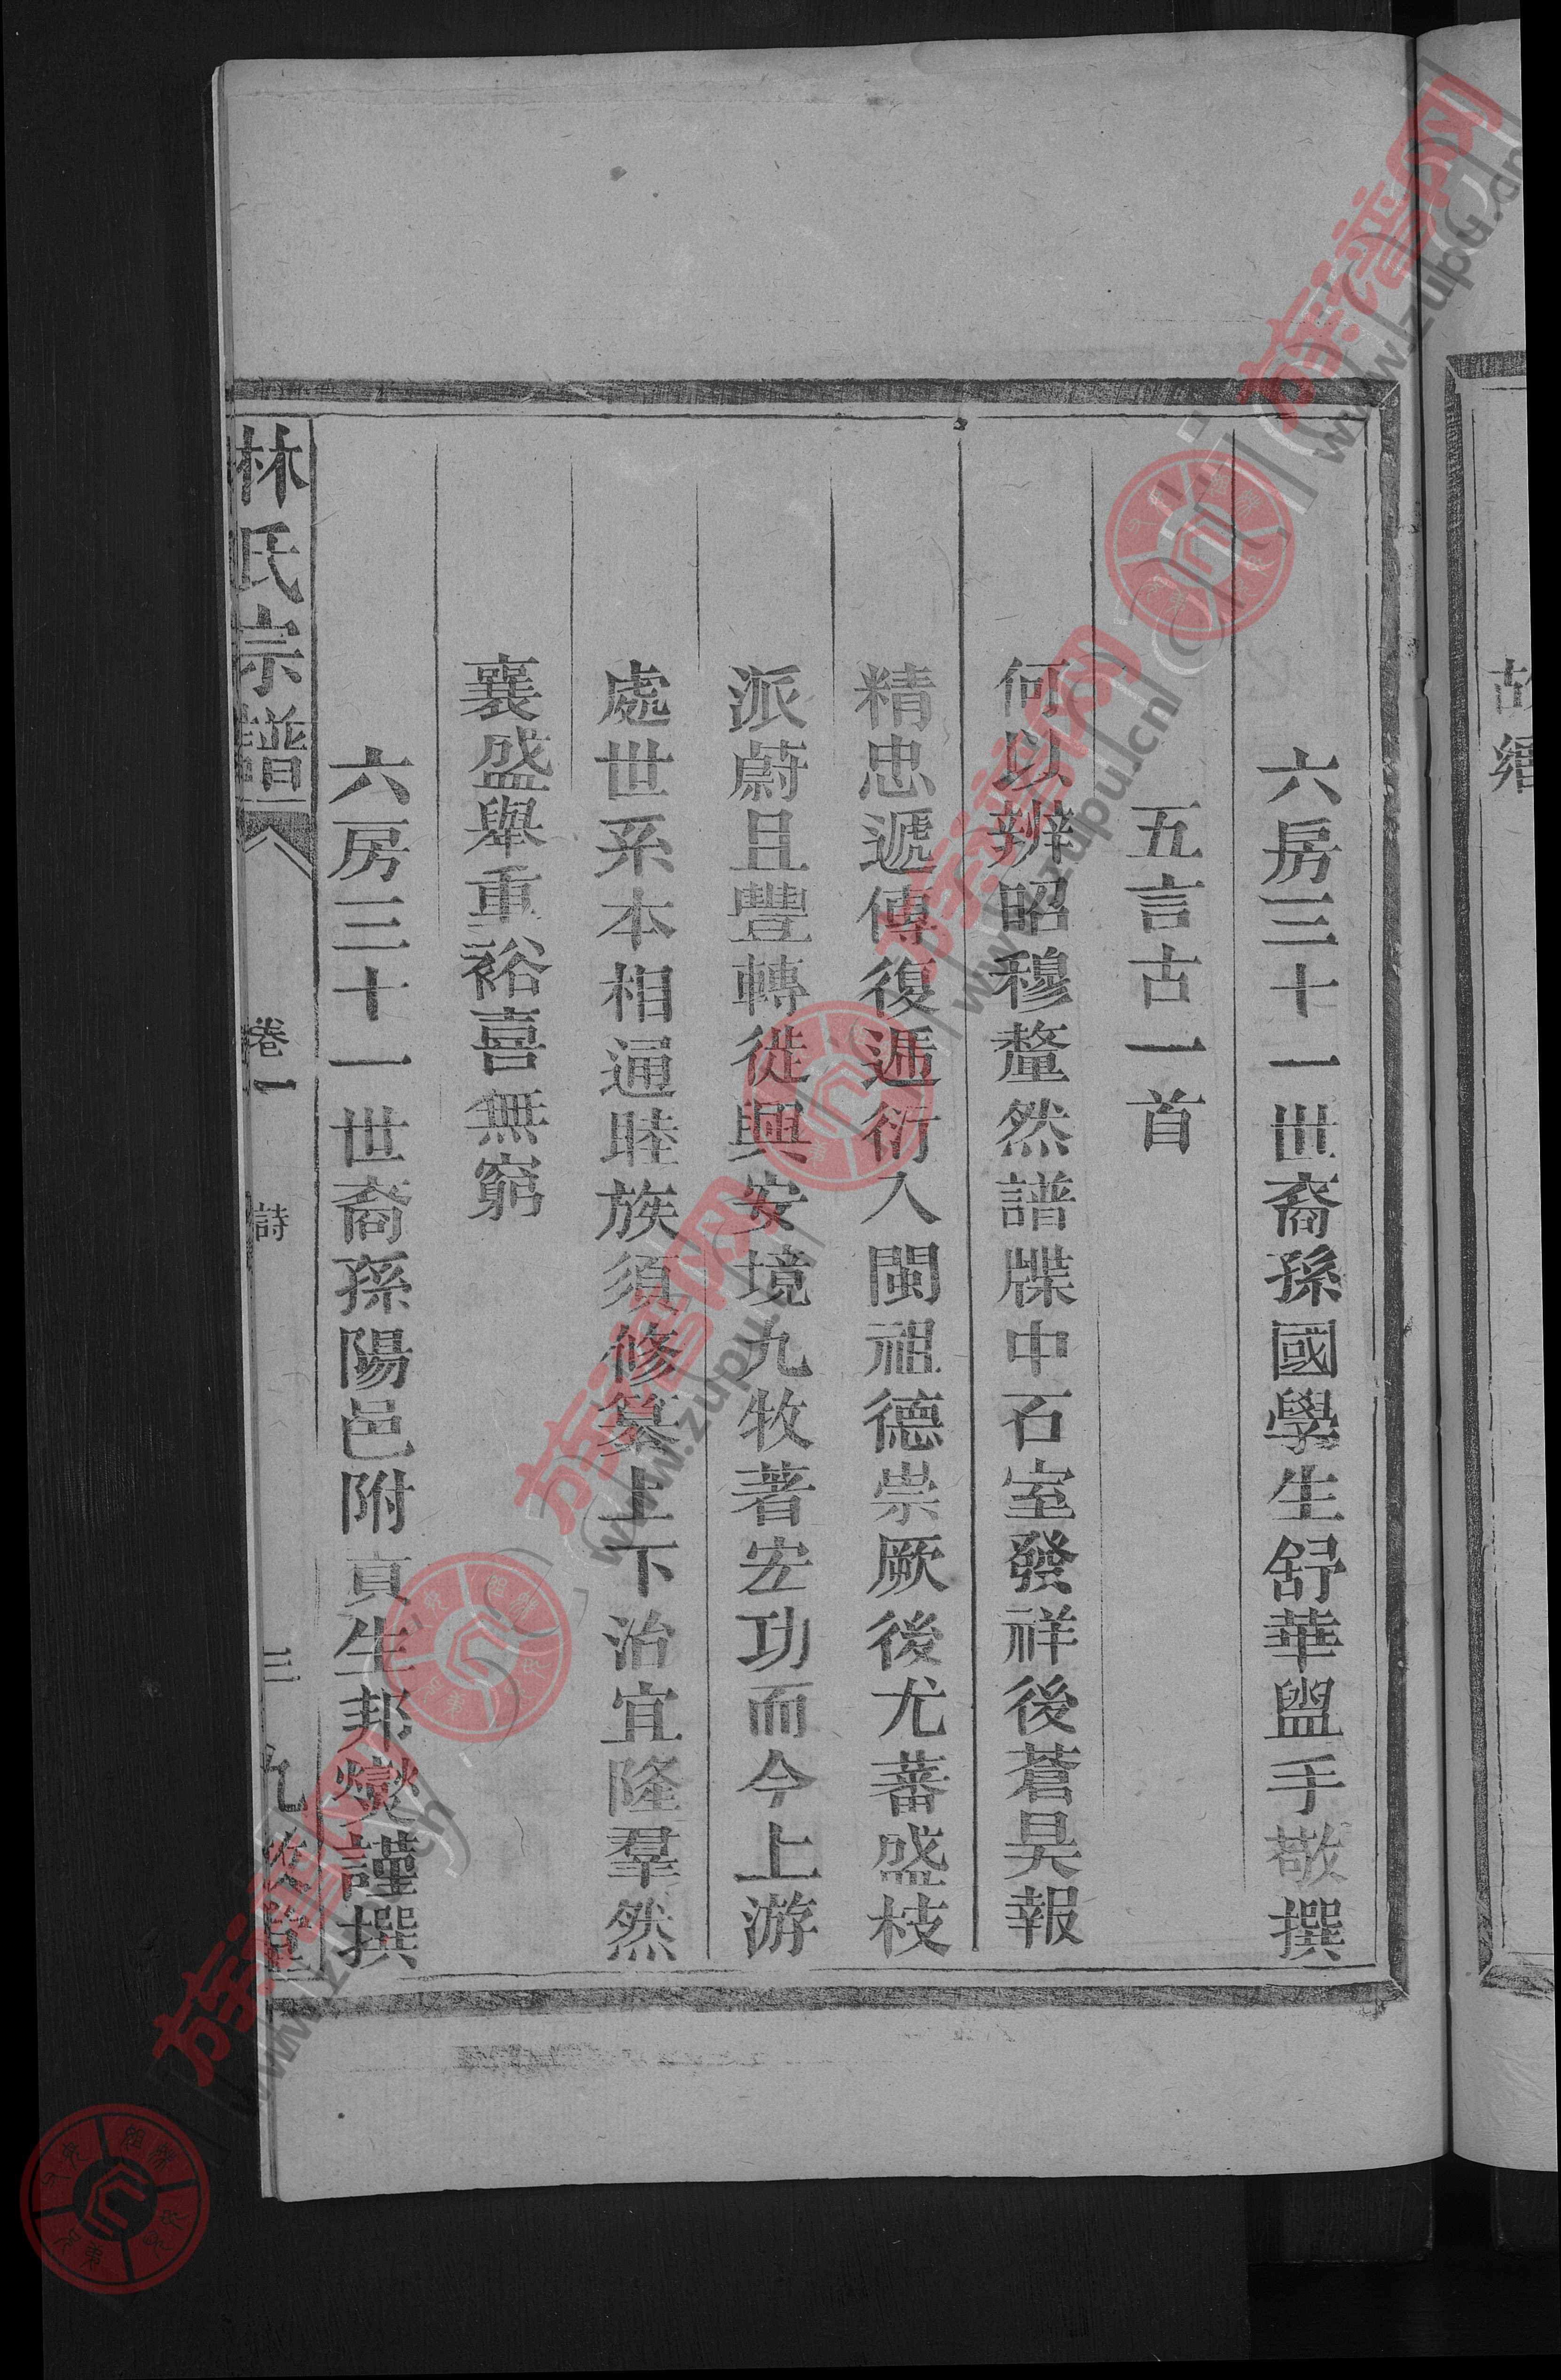 故鄉
六房三十一世裔孫國學生舒華盥手敬撰
五言古一首
何以辨昭穆釐然譜牒中石室發祥後蒼昊報
精忠遞傳復遞衍入閩祖德崇厥後尤蕃盛枝
派蔚且豐轉徙興安境九牧著宏功而今上游
處世系本相通睦族須修纂上下治宜隆羣然
襄盛舉重裕喜無窮
六房三十一世裔孫陽邑附貢生邦燮謹撰
林氏宗譜
卷一
詩
三
九牧堂
族譜网
www.zupu.cn
族譜网
www.zupu.cn
族譜网
www.zupu.cn
族譜网
www.zupu.cn